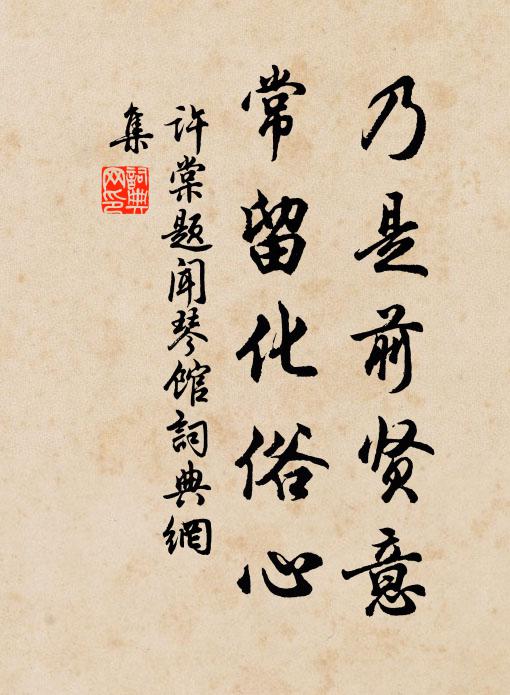 乃是前贤意
常留化俗心
许棠题闻琴馆词典網
集
詞典网印